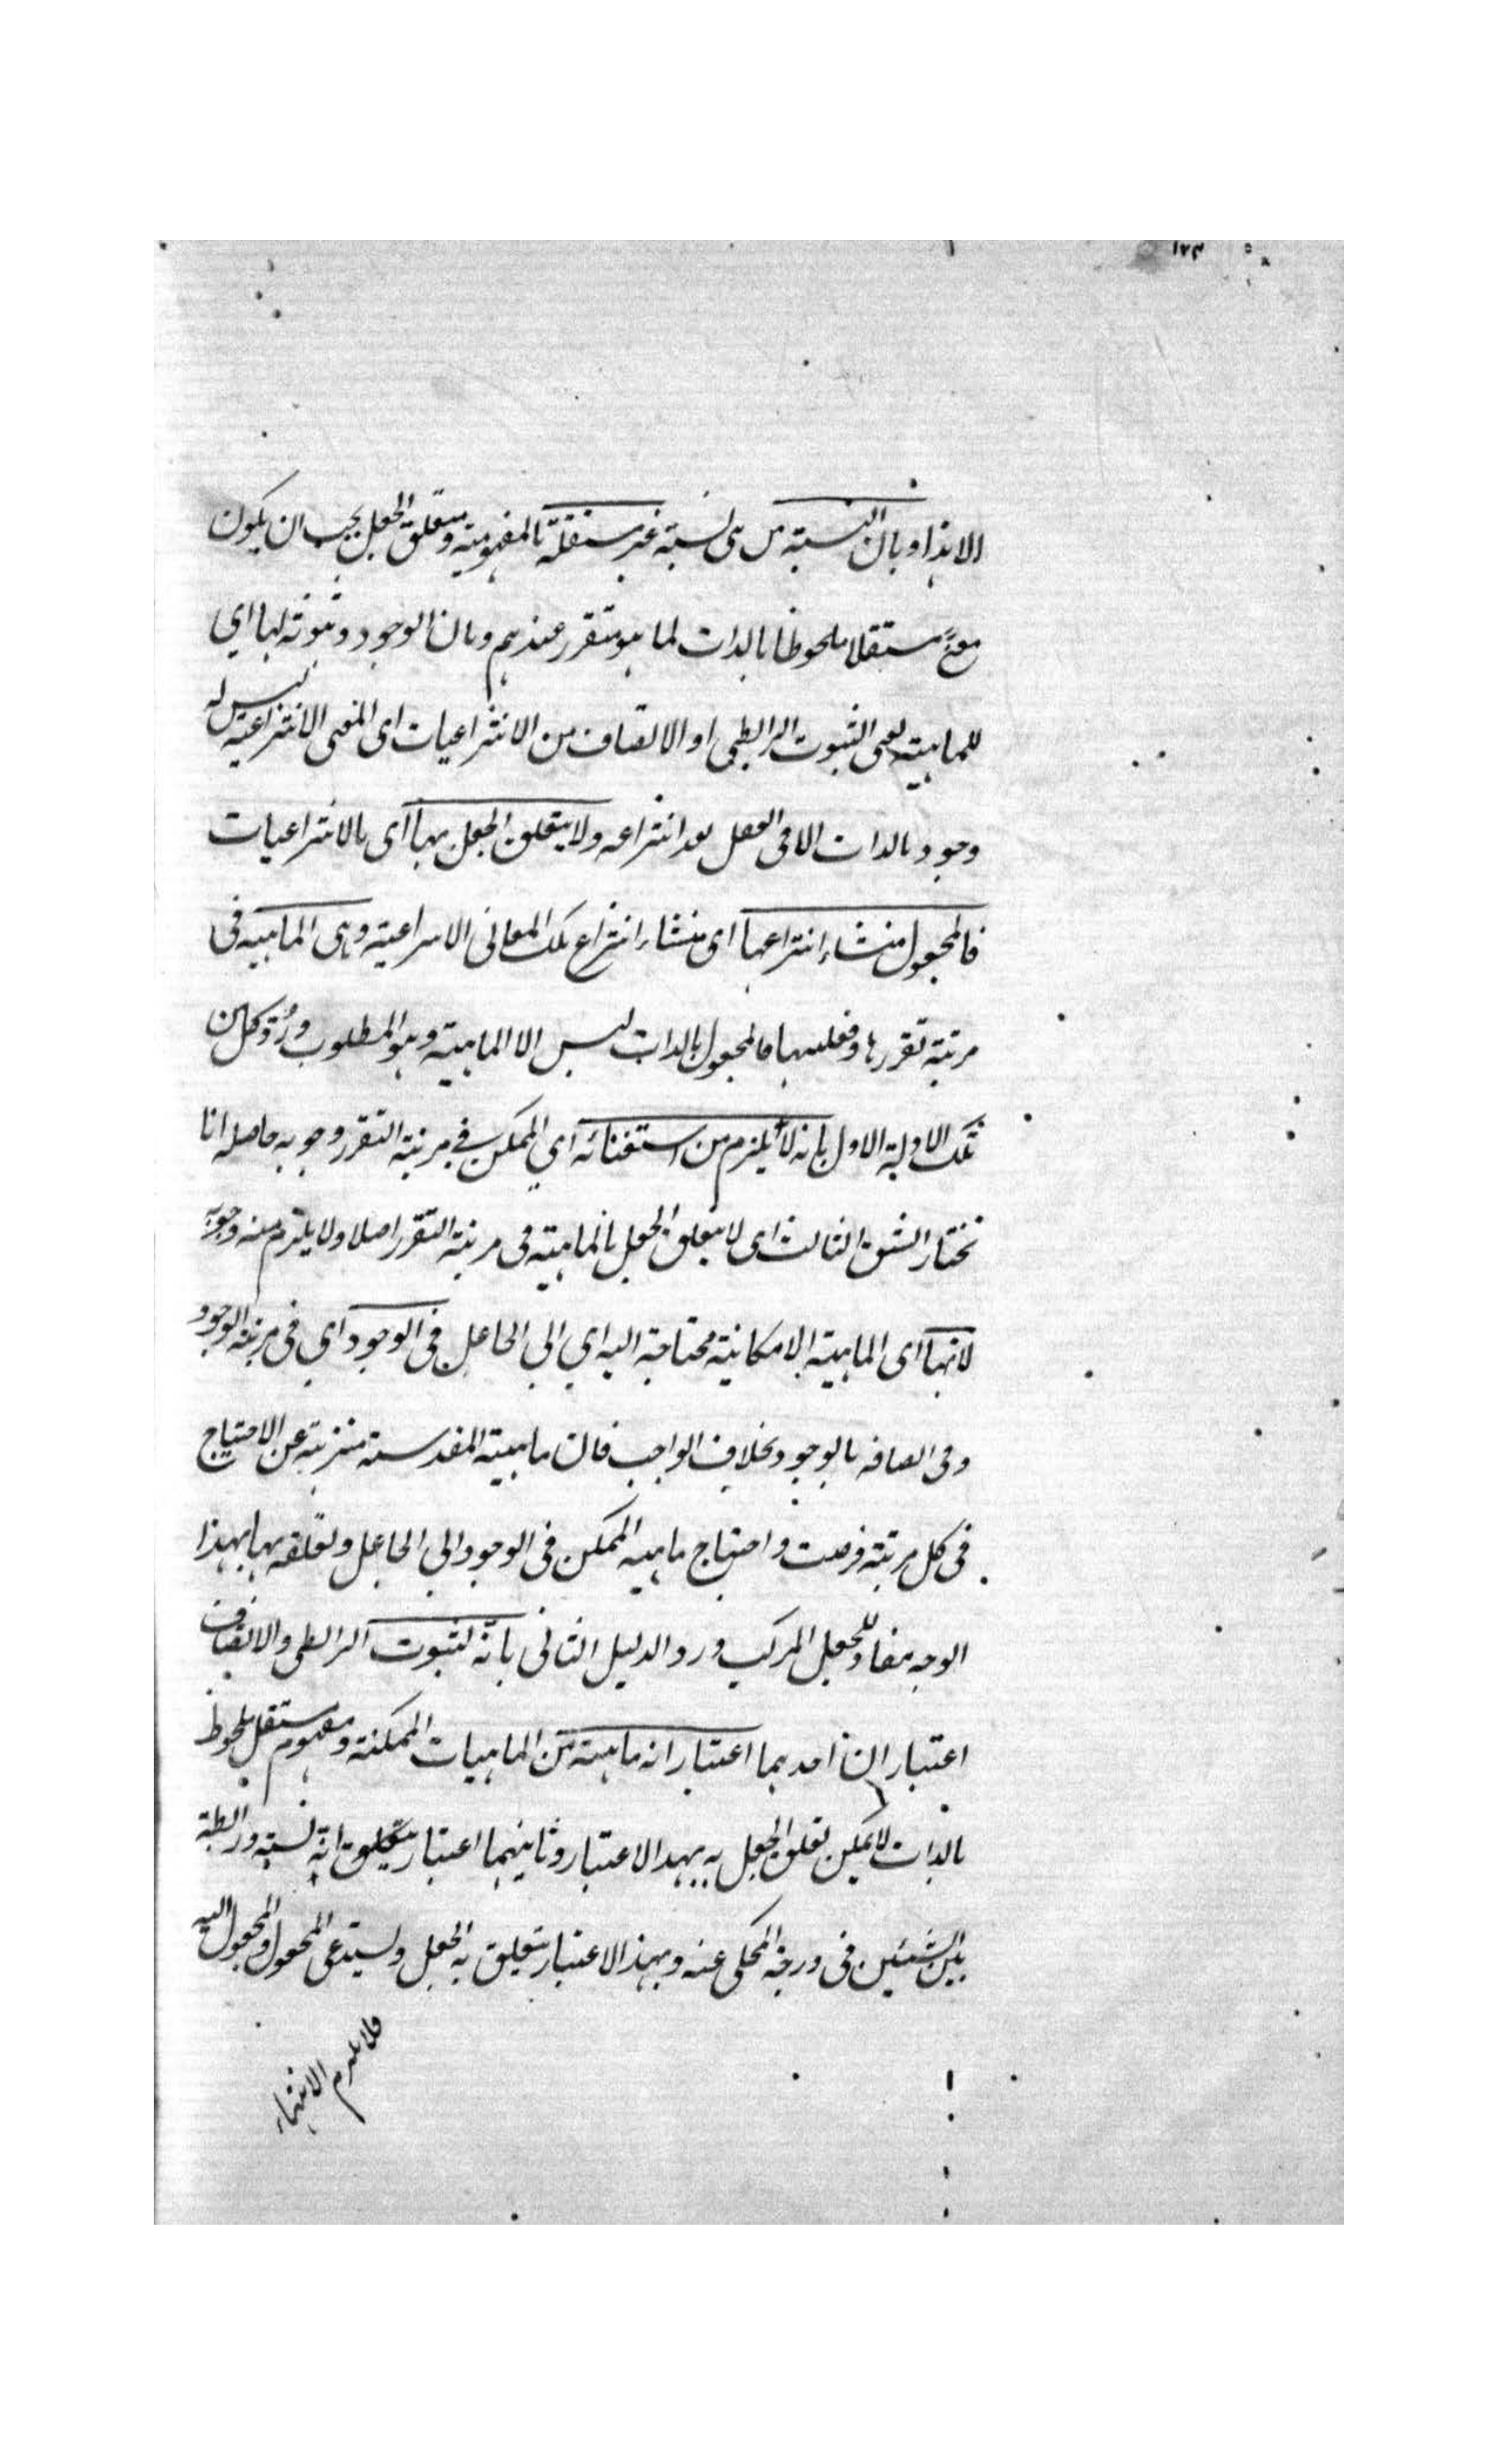 ١٢٣
الا بذا وبان النسبة من هى نسبة غير مستقلة بالمفهومية ومتعلق الجعل يجب ان يكون
معنى مستقلا ملحوظا بالذات لما هو متقرر عندهم وبان الوجود وثبوته لها اي
للماهية يعنى الثبوت الرابطى او الاتصاف من الانتزاعيات اى المعنى الانتزاعية ليس له
وجود بالذات الا فى العقل بعد انتزاعه ولا يتعلق الجعل بها اى بالانتزاعيات
فالمجعول منشاء انتزاعها اى منشاء انتزاع تلك المعانى الانتزاعية وهى الماهية فى
مرتبة تقررها وفعليتها فالمجعول بالذات ليس الا الماهية وهو المطلوب ورُد كل من
تلك الادلة الاول بانه لا يلزم من استغنائه اي الممكن في مرتبة التقرر وجوبه حاصله انا
نختار الشق الثالث اى لا يتعلق الجعل بالماهية فى مرتبة التقرر اصلا ولا يلزم منه وجوبه
لانها اى الماهية الامكانية محتاجة اليه اي الي الجاعل فى الوجود اي فى مرتبة الوجود
وفى اتصافه بالوجود بخلاف الواجب فان ماهيته المقدسة منزهة عن الاحتياج
فى كل مرتبة فرضت واحتياج ماهية الممكن فى الوجود الي الجاعل وتعلقه بها بهذا
الوجه مفاد للجعل المركب ورد الدليل الثانى بانه لثبوت الرابطى والاتصاف
اعتباران احدهما اعتبار انه ماهية من الماهيات الممكنة ومفهوم مستقل ملحوظ
بالذات لا يمكن تعلق الجعل به بهذا الاعتبار وثانيهما اعتبار يتعلق انه نسبة ورابطة
بين الشيئين فى درجة المحكى عنه وبهذا الاعتبار يتعلق به الجعل ويستدعى المجعول والمجعول اليه
فلا يلزم الانتهاء